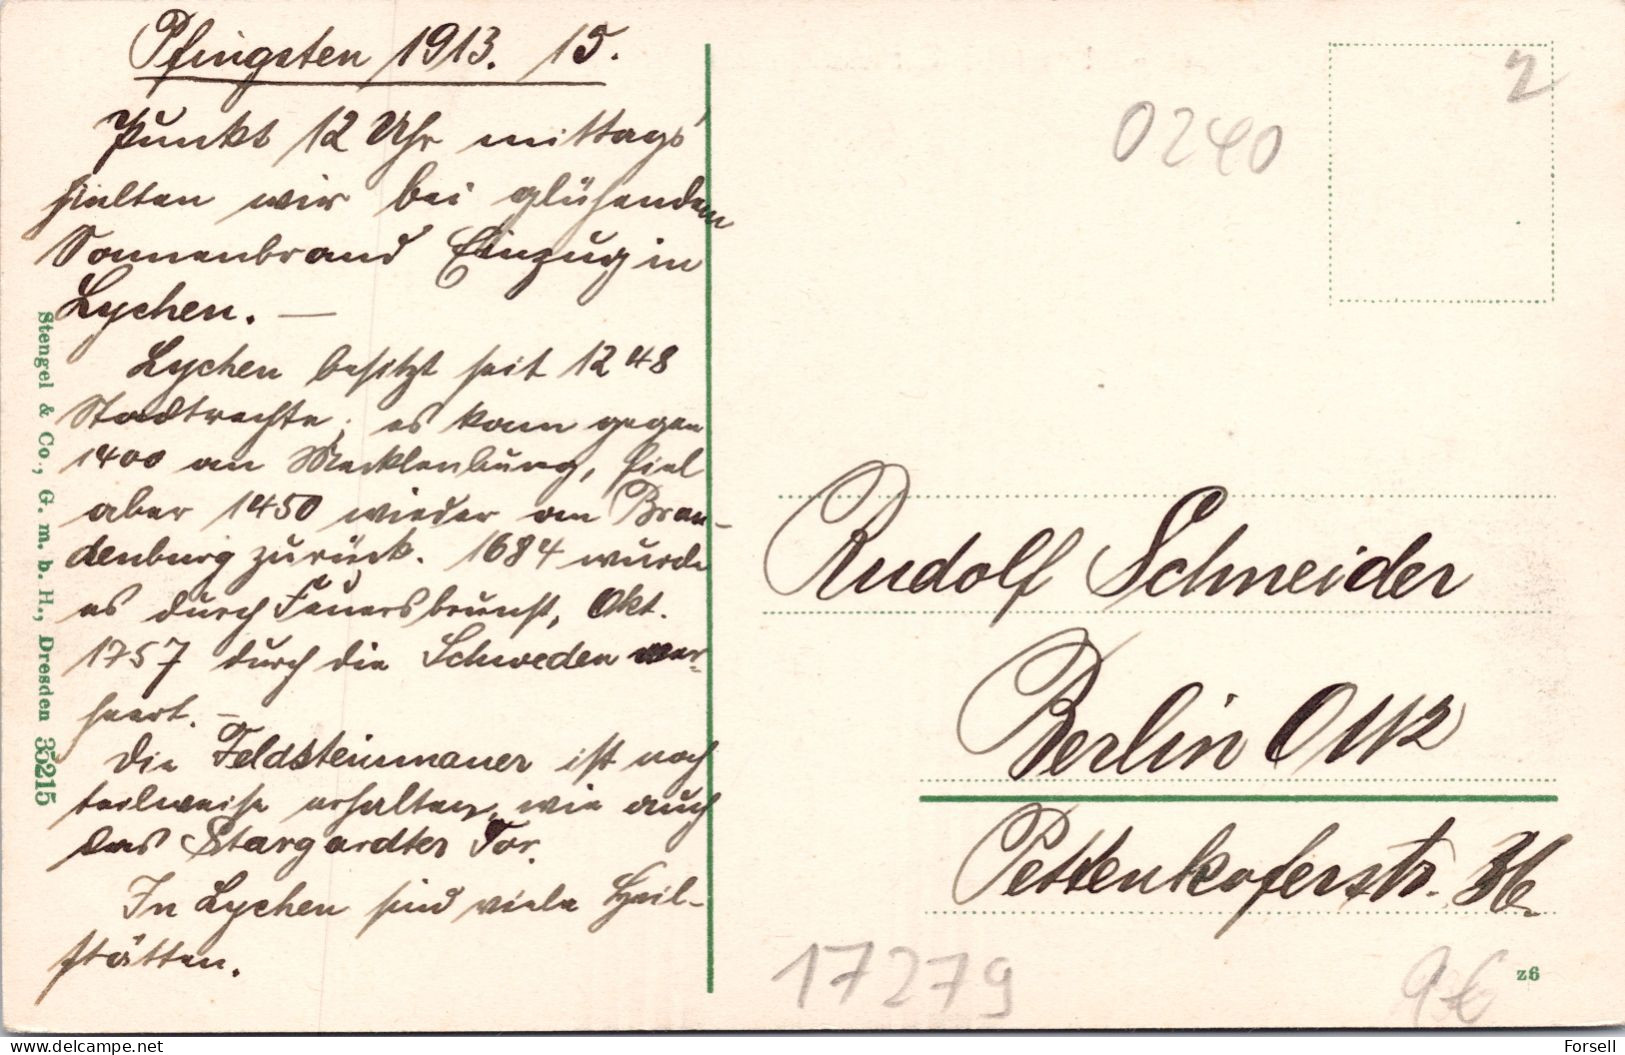 Pfingsten 1913. 15.
Punkt 12 Uhr mittags
halten wir bei glühendem
Sonnenbrand Einzug in
Lychen. —
Lychen besitzt seit 1248
Stadtrechte; es kam gegen
1400 an Mecklenburg, fiel
aber 1450 wieder an Bran-
denburg zurück. 1684 wurde
es durch Feuersbrunst, Okt.
1757 durch die Schweden ver-
heert. —
Die Feldsteinmauer ist noch
teilweise erhalten, wie auch
das Stargardter Tor.
In Lychen sind viele Heil-
stätten.
Stengel & Co., G. m. b. H., Dresden 35215
2
0240
Rudolf Schneider
Berlin O 112
Pettenkoferstr. 36.
17279
9€
z6
delcampe.net
Forsell